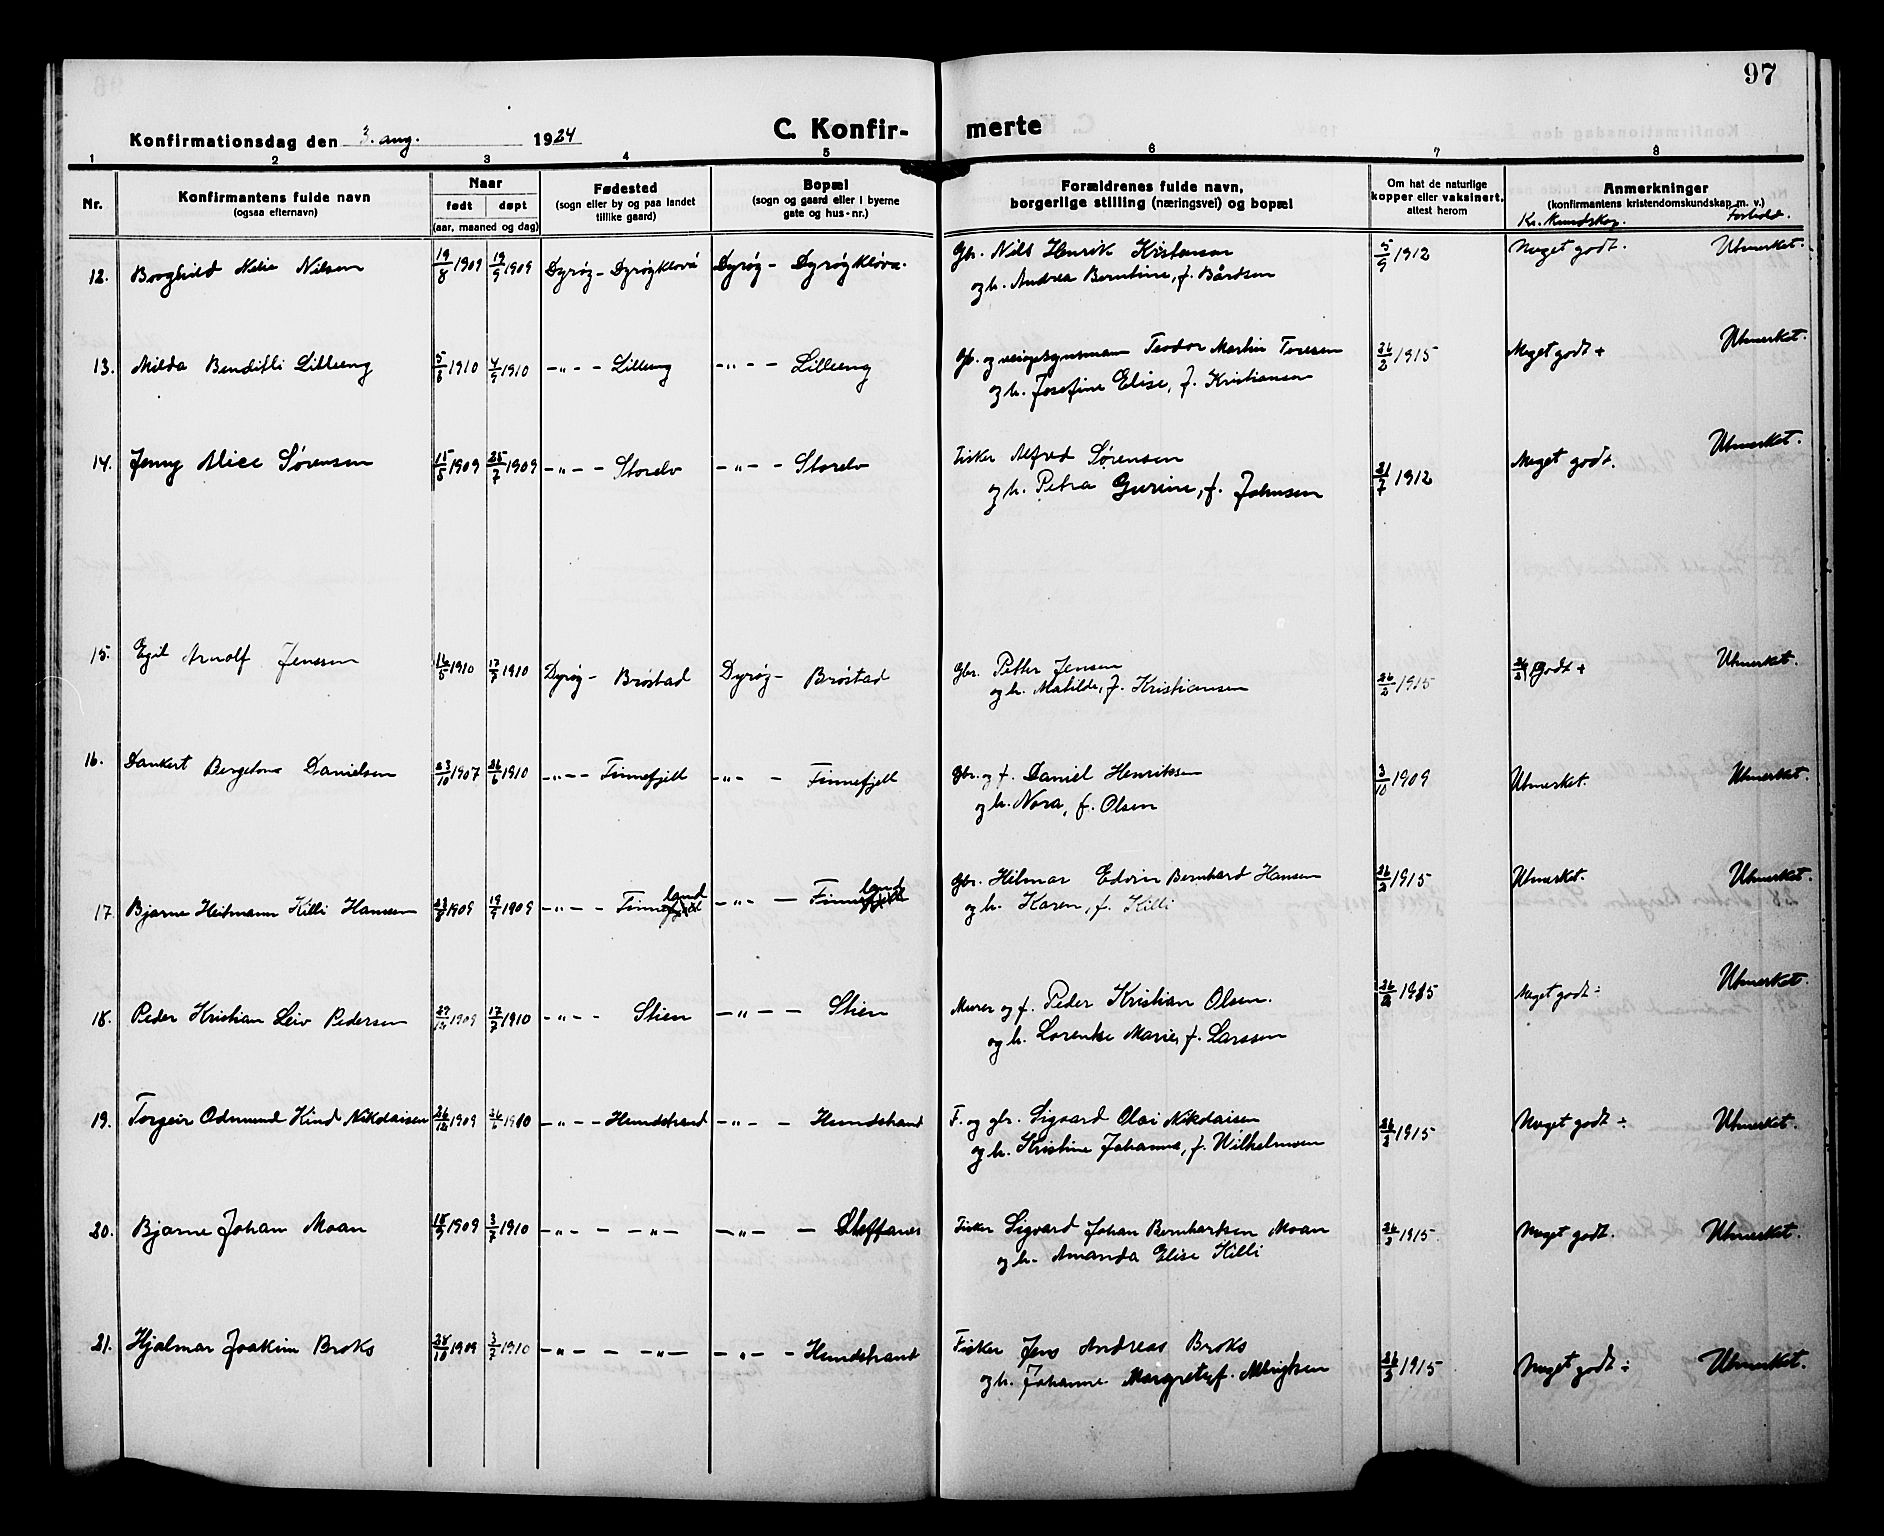 97
Konfirmationsdag den 3. aug. 1924 C. Konfirmerte
1 2 3 4 5 6 7 8
Nr. Konfirmantens fulde navn (ogsaa efternavn) Naar født døpt (aar, maaned og dag) Fødested (sogn eller by og paa landet tillike gaard) Bopæl (sogn og gaard eller i byerne gate og hus-nr.) Forældrenes fulde navn, borgerlige stilling (næringsvei) og bopæl Om hat de naturlige kopper eller vaksinert, attest herom Anmerkninger (konfirmantens kristendomskundskap m. v.)
Kr. kundskap. Forhold.
12. Borghild Nelie Nilsen 19/8 1909 19/9 1909 Dyrøy - Dyrøykløva Dyrøy - Dyrøykløva. Gbr. Nils Henrik Kristensen 5/9 1912 Meget godt. Utmerket.
og h. Andrea Berntine, f. Bårdsen
13. Milda Benditli Lilleeng 5/6 1910 4/9 1910 -"- - Lilleeng -"- - Lilleeng Gb. og veiopsynsmann Teodor Martin Toresen 26/2 1915 Meget godt + Utmerket.
og h. Josefine Elise, f. Kristiansen
14. Jenny Alice Sørensen 15/5 1909 25/7 1909 -"- - Storelv -"- - Storelv Fisker Alfred Sørensen 21/7 1912 Meget godt. Utmerket.
og h. Petra Gurine, f. Johnsen
15. Egil Arnolf Jenssen 16/5 1910 17/7 1910 Dyrøy - Brøstad Dyrøy - Brøstad Gbr. Petter Jensen 26/2 1915 Godt + Utmerket.
og h. Matilde, f. Kristiansen
16. Dankert Bergeton Danielsen 23/10 1907 26/6 1910 -"- - Finnefjell -"- - Finnefjell Gbr. og f. Daniel Henriksen 3/10 1909 Utmerket. Utmerket.
og h. Nora, f. Olsen
17. Bjarne Heitmann Killi Hansen 23/8 1909 19/9 1909 -"- - Finnland -"- - Finnland Gbr. Hilmar Edvin Bernhard Hansen 26/2 1915 Utmerket. Utmerket.
og h. Karen, f. Killi
18. Peder Kristian Leiv Pedersen 27/12 1909 17/7 1910 -"- - Stien -"- - Stien Murer og f. Peder Kristian Olsen. 26/2 1915 Meget godt ÷ Utmerket.
og h. Lorentse Marie, f. Larssen
19. Torgeir Odmund Kind Nikolaisen 26/12 1909 26/6 1910 -"- - Hundstrand -"- - Hundstrand F. og gbr. Sigvard Olai Nikolaisen 26/2 1915 Meget godt ÷ Utmerket.
og h. Kristine Johanna, f. Wilhelmsen
20. Bjarne Johan Moan 18/9 1909 3/7 1910 -"- - -"- -"- - Steffanes Fisker Sigvard Johan Bernhardsen Moan 26/2 1915 Meget godt. Utmerket.
og h. Amanda Elise Killi
21. Hjalmar Joakim Broks 28/10 1909 3/7 1910 -"- - -"- -"- - Hundstrand Fisker Jens Andreas Broks 26/3 1915 Meget godt ÷ Utmerket.
og h. Johanne Margrete, f. Albrigtsen